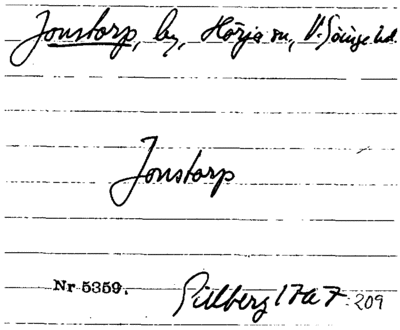 Jonstorp, by, Hörja sn, V. Göinge hd.
Jonstorp
Nr 5359.
Gillberg 1767: 209